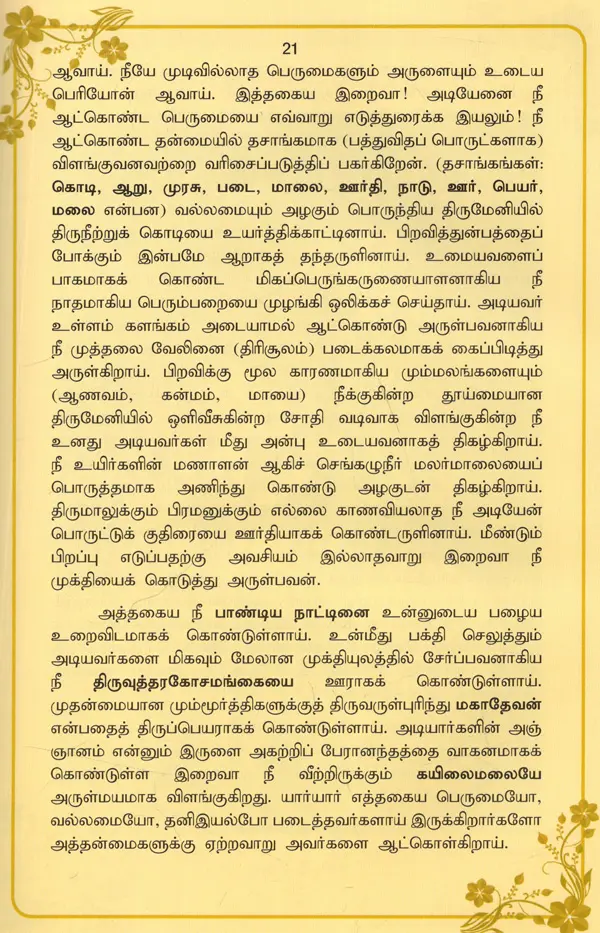 21
ஆவாய். நீயே முடிவில்லாத பெருமைகளும் அருளையும் உடைய
பெரியோன் ஆவாய். இத்தகைய இறைவா! அடியேனை நீ
ஆட்கொண்ட பெருமையை எவ்வாறு எடுத்துரைக்க இயலும்! நீ
ஆட்கொண்ட தன்மையில் தசாங்கமாக (பத்துவிதப் பொருட்களாக)
விளங்குவனவற்றை வரிசைப்படுத்திப் பகர்கிறேன். (தசாங்கங்கள்:
கொடி, ஆறு, முரசு, படை, மாலை, ஊர்தி, நாடு, ஊர், பெயர்,
மலை என்பன) வல்லமையும் அழகும் பொருந்திய திருமேனியில்
திருநீற்றுக் கொடியை உயர்த்திக்காட்டினாய். பிறவித்துன்பத்தைப்
போக்கும் இன்பமே ஆறாகத் தந்தருளினாய். உமையவளைப்
பாகமாகக் கொண்ட மிகப்பெருங்கருணையாளனாகிய நீ
நாதமாகிய பெரும்பறையை முழங்கி ஒலிக்கச் செய்தாய். அடியவர்
உள்ளம் களங்கம் அடையாமல் ஆட்கொண்டு அருள்பவனாகிய
நீ முத்தலை வேலினை (திரிசூலம்) படைக்கலமாகக் கைப்பிடித்து
அருள்கிறாய். பிறவிக்கு மூல காரணமாகிய மும்மலங்களையும்
(ஆணவம், கன்மம், மாயை) நீக்குகின்ற தூய்மையான
திருமேனியில் ஒளிவீசுகின்ற சோதி வடிவாக விளங்குகின்ற நீ
உனது அடியவர்கள் மீது அன்பு உடையவனாகத் திகழ்கிறாய்.
நீ உயிர்களின் மணாளன் ஆகிச் செங்கழுநீர் மலர்மாலையைப்
பொருத்தமாக அணிந்து கொண்டு அழகுடன் திகழ்கிறாய்.
திருமாலுக்கும் பிரமனுக்கும் எல்லை காணவியலாத நீ அடியேன்
பொருட்டுக் குதிரையை ஊர்தியாகக் கொண்டருளினாய். மீண்டும்
பிறப்பு எடுப்பதற்கு அவசியம் இல்லாதவாறு இறைவா நீ
முக்தியைக் கொடுத்து அருள்பவன்.
அத்தகைய நீ பாண்டிய நாட்டினை உன்னுடைய பழைய
உறைவிடமாகக் கொண்டுள்ளாய். உன்மீது பக்தி செலுத்தும்
அடியவர்களை மிகவும் மேலான முக்தியுலத்தில் சேர்ப்பவனாகிய
நீ திருவுத்தரகோசமங்கையை ஊராகக் கொண்டுள்ளாய்.
முதன்மையான மும்மூர்த்திகளுக்குத் திருவருள்புரிந்து மகாதேவன்
என்பதைத் திருப்பெயராகக் கொண்டுள்ளாய். அடியார்களின் அஞ்
ஞானம் என்னும் இருளை அகற்றிப் பேரானந்தத்தை வாகனமாகக்
கொண்டுள்ள இறைவா நீ வீற்றிருக்கும் கயிலைமலையே
அருள்மயமாக விளங்குகிறது. யார்யார் எத்தகைய பெருமையோ,
வல்லமையோ, தனிஇயல்போ படைத்தவர்களாய் இருக்கிறார்களோ
அத்தன்மைகளுக்கு ஏற்றவாறு அவர்களை ஆட்கொள்கிறாய்.